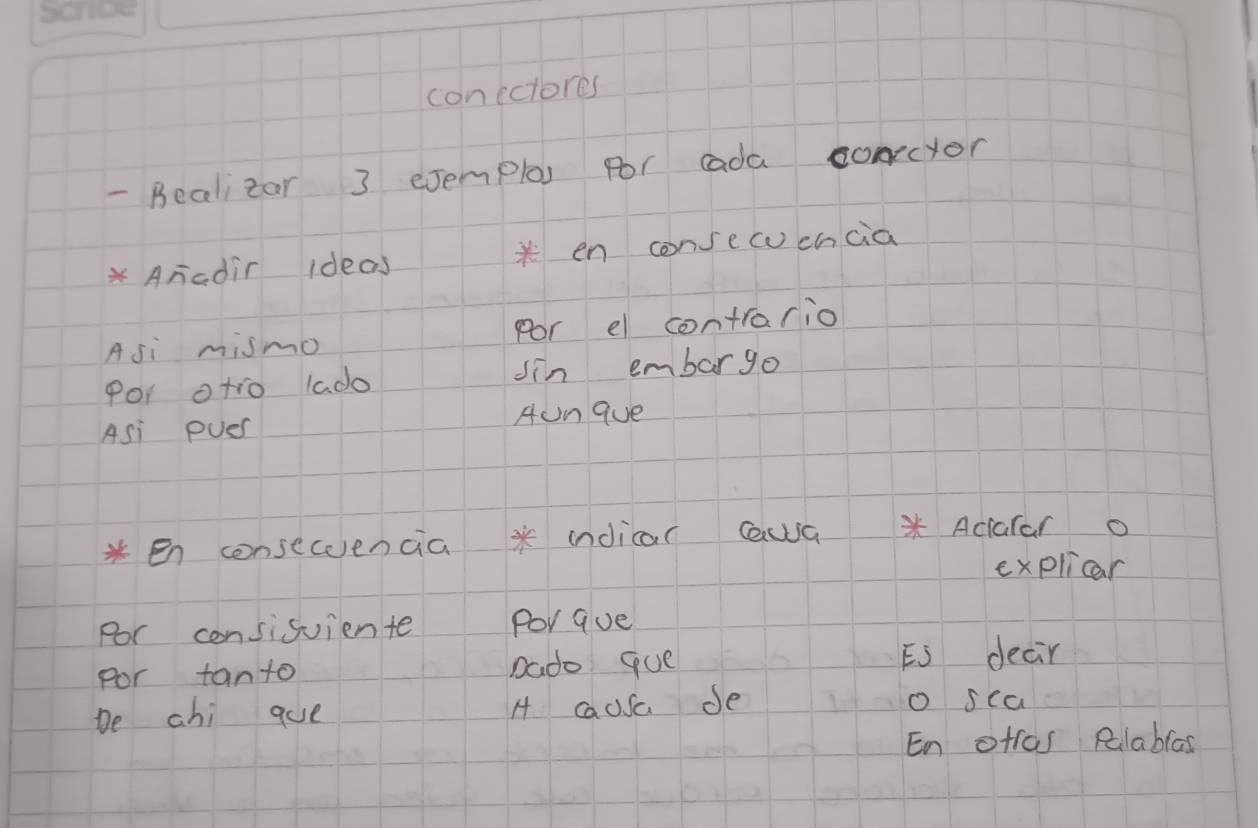 Scribe
conectores
- Realizar 3 ejemplos por cada conector
* Añadir ideas
Asi mismo
Por otro lado
Asi pues
* en consecuencia
Por el contrario
Sin embargo
Aunque
* En consecuencia
Por consiguiente
Por tanto
De ahi que
* indicar causa
Porque
Dado que
A causa de
* Aclarar o
explicar
Es decir
o sea
En otras Palabras